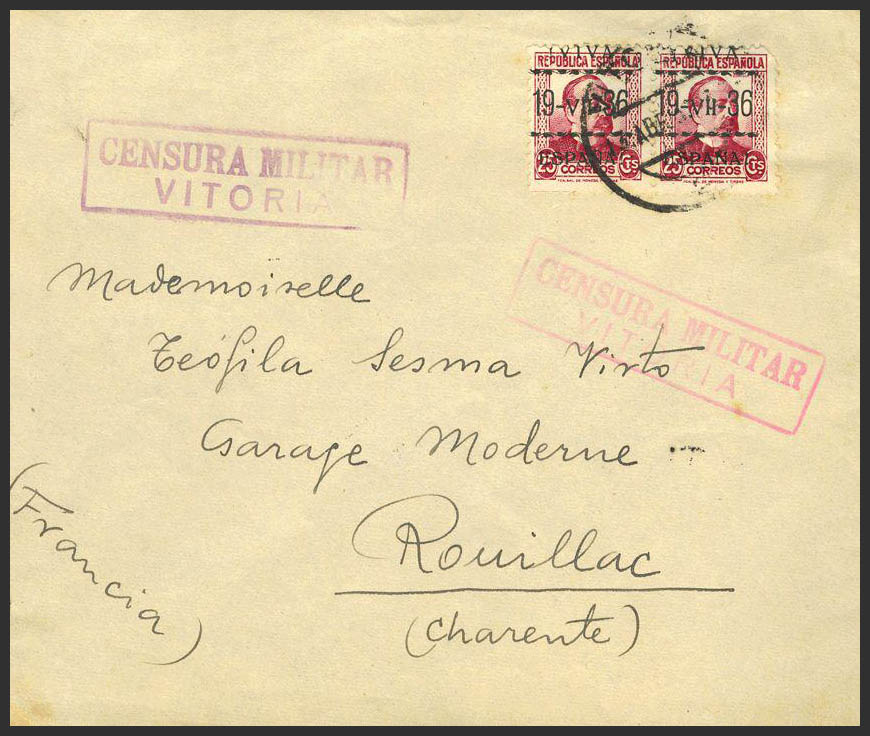 ¡VIVA
REPÚBLICA ESPAÑOLA
19-VII-36
ESPAÑA
25 CTS
CORREOS
¡VIVA
REPÚBLICA ESPAÑOLA
19-VII-36
ESPAÑA
25 CTS
CORREOS
CENSURA MILITAR
VITORIA
CENSURA MILITAR
VITORIA
Mademoiselle
Teófila Sesma Virto
Garage Moderne
Rouillac
(Charente)
(Francia)